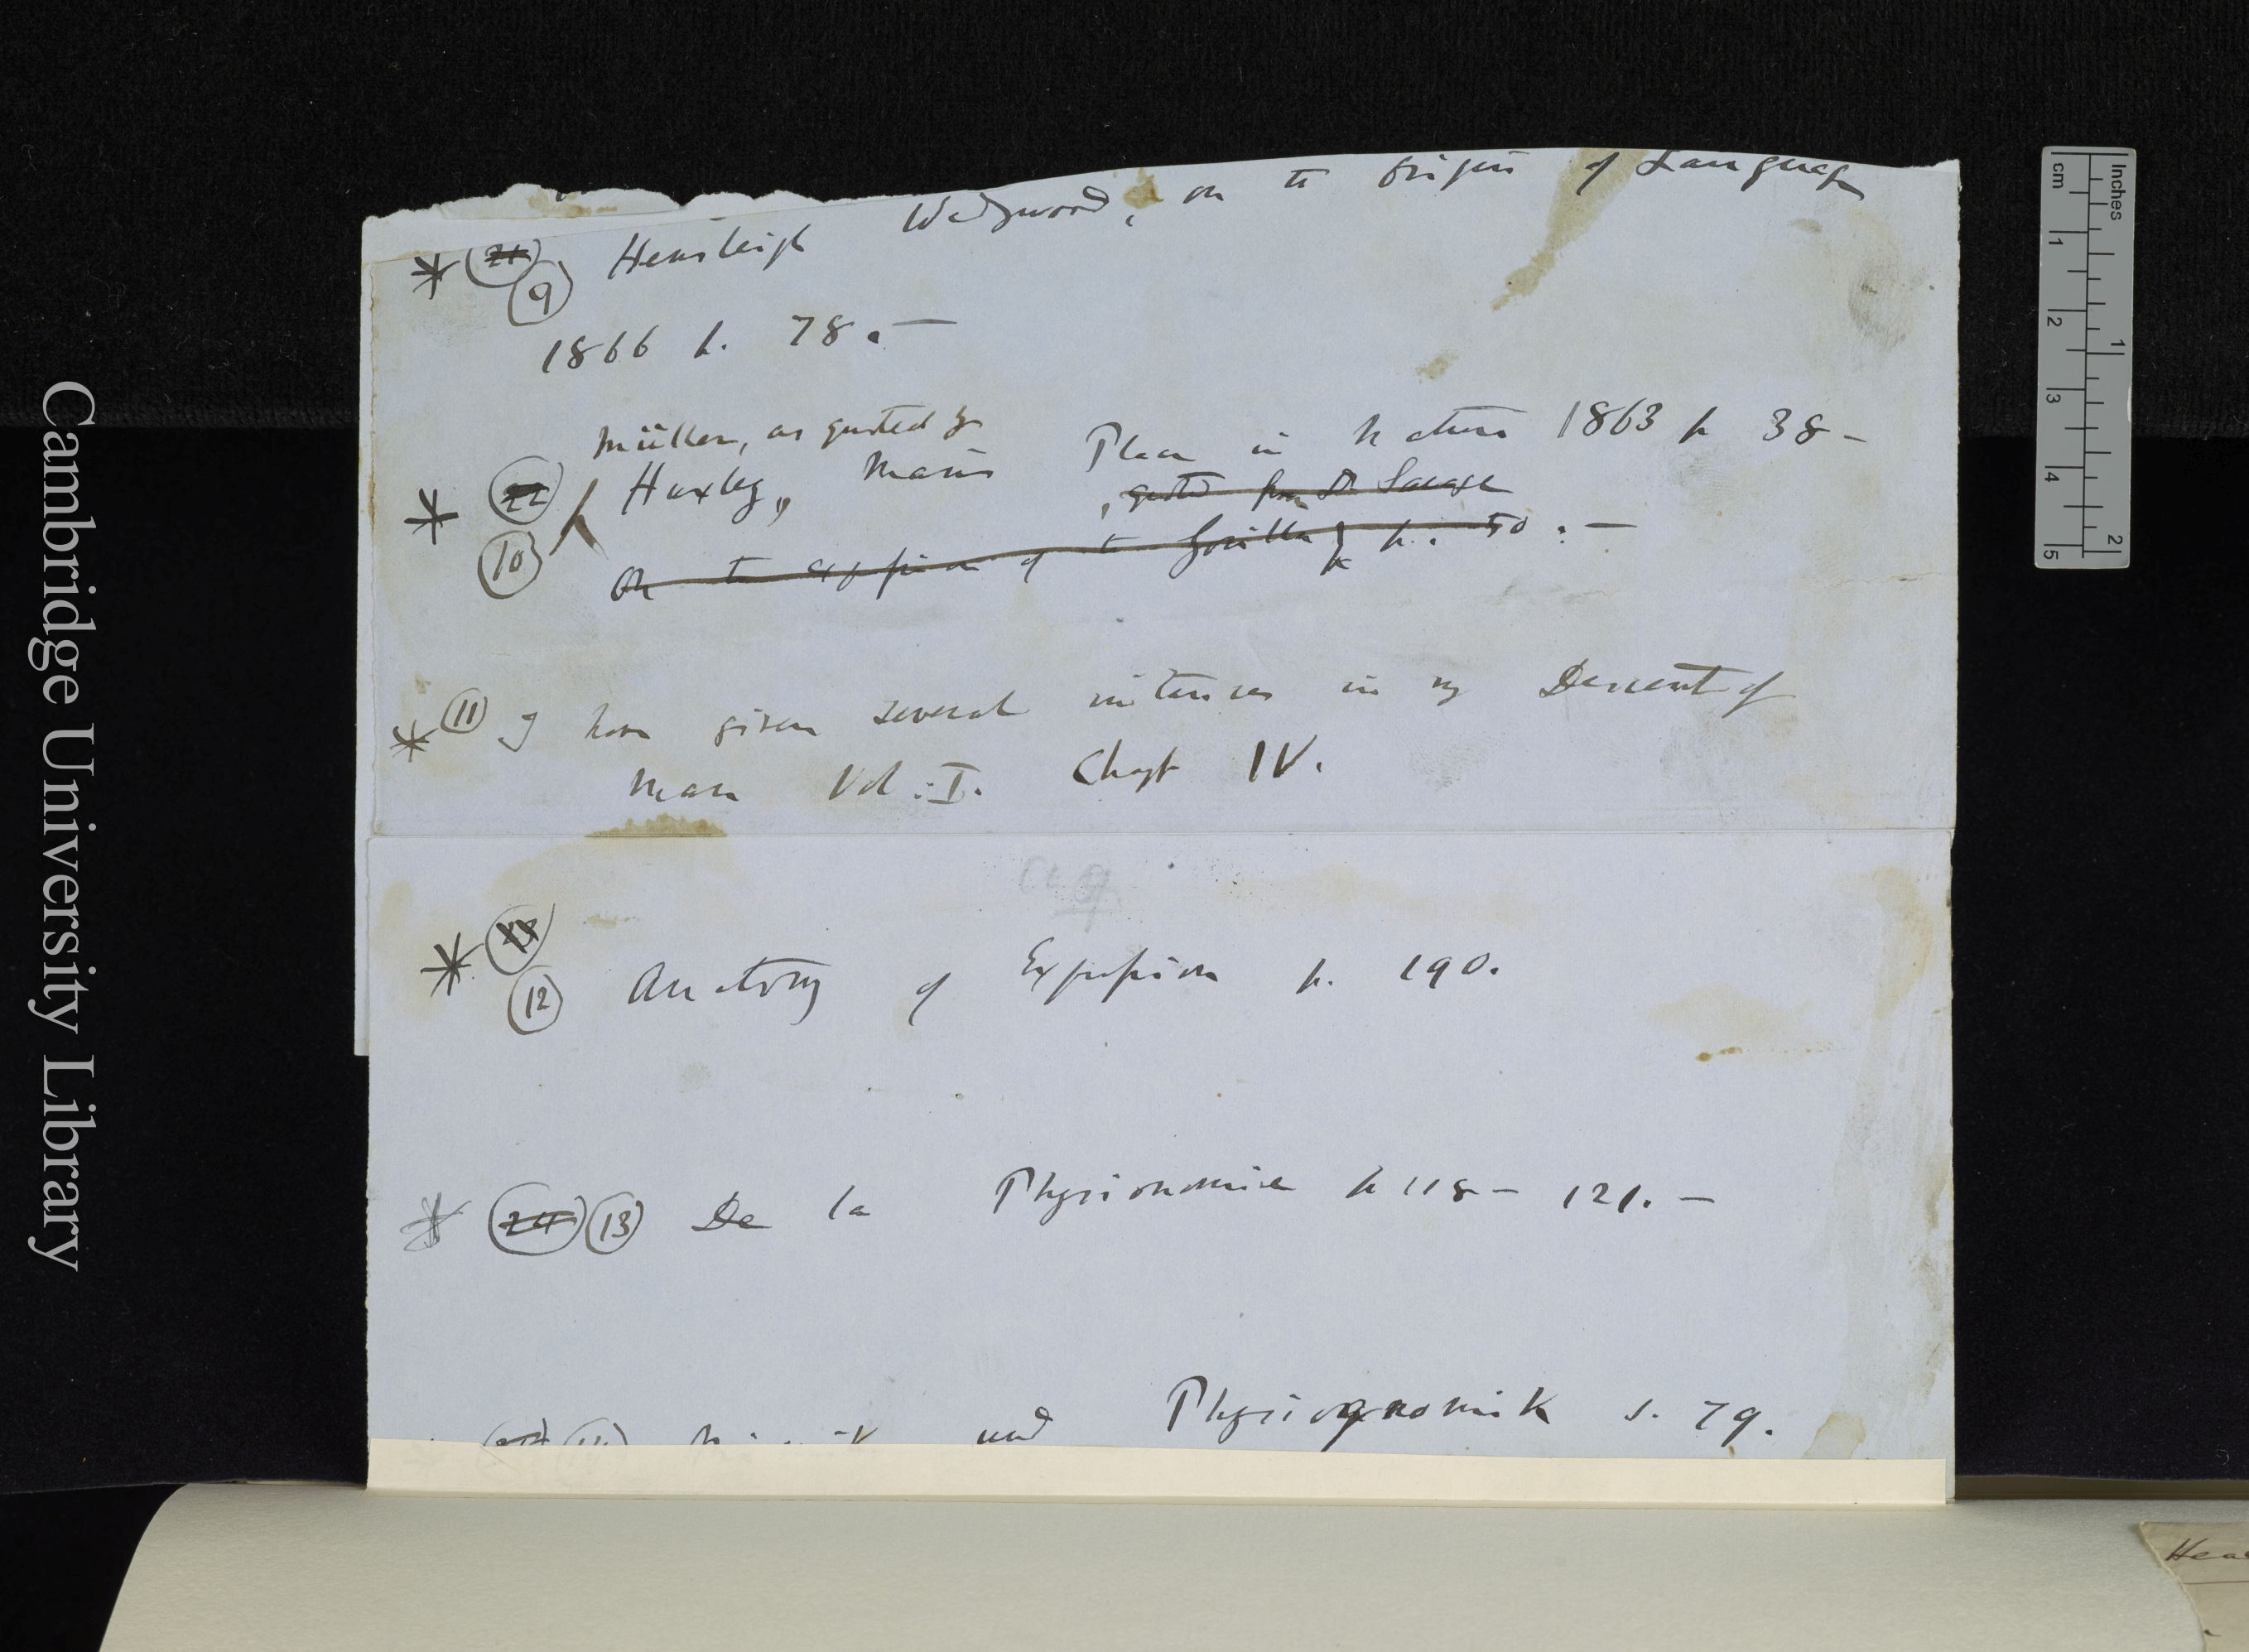 * (21) (9) Hensleigh Wedgwood, on the Origin of Language
1866 p. 78. —
Müller, as quoted by
* (22) (10) Huxley, Man's Place in Nature 1863 p 38 —
, quoted from Dr Savage
On the expression of the Gorilla p. 50. —
* (11) I have given several instances in my Descent of
Man Vol. I. Chapt IV.
Ch 9
* (12) Anatomy of Expression p. 190.
* (24) (13) De la Physionomie p 118 — 121. —
(14) und Physiognomik s. 79.
Hea
cm 1 2 3 4 5
Inches 1 2
Cambridge University Library